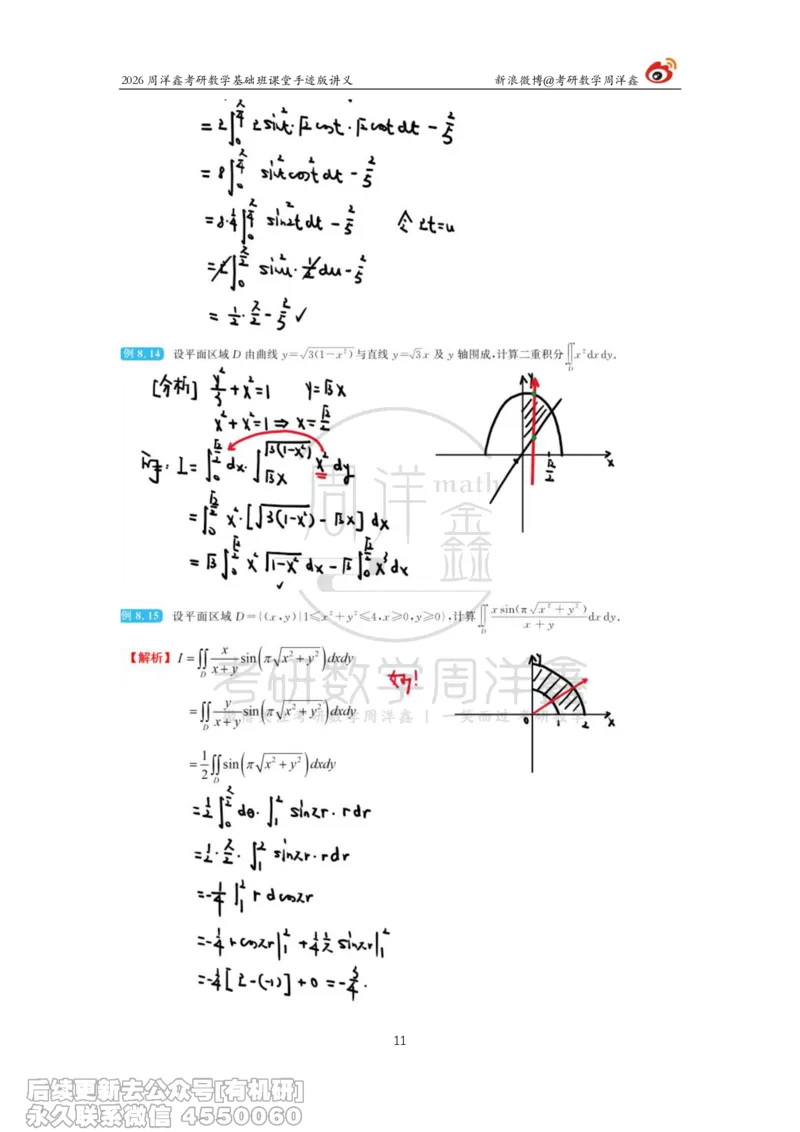 2026 周洋鑫考研数学基础班课堂手迹版讲义 新浪微博@考研数学周洋鑫
=2∫₀^{π/4} 2sin²t·√2cost·√2costdt - 2/5
=8∫₀^{π/4} sin²tcos²tdt - 2/5
=8·1/4∫₀^{π/4} sin²2tdt - 2/5 令2t=u
=2∫₀^{π/2} sin²u·1/2du - 2/5
=1/2·π/2 - 2/5 ✓
例 8.14 设平面区域 D 由曲线 y=√3(1-x²) 与直线 y=√3x 及 y 轴围成,计算二重积分∬_D x²dxdy.
[分析] y²/3+x²=1 y=√3x
x²+x²=1⇒x=√2/2
I=∫₀^{√2/2}dx·∫_{√3x}^{√3(1-x²)} x²dy
=∫₀^{√2/2} x²·[√3(1-x²) - √3x]dx
=√3∫₀^{√2/2} x²√1-x² dx - √3∫₀^{√2/2} x³dx
✓
y
x
√2/2
周洋
math
鑫
例 8.15 设平面区域 D={(x,y)|1≤x²+y²≤4,x≥0,y≥0},计算∬_D x sin(π√x²+y²)/(x+y) dxdy.
【解析】I=∬_D x/(x+y) sin(π√x²+y²)dxdy
妙!
=∬_D y/(x+y) sin(π√x²+y²)dxdy
=1/2∬_D sin(π√x²+y²)dxdy
=1/2∫₀^{π/2}dθ·∫₁² sinπr·rdr
=1/2·π/2·∫₁² sinπr·rdr
=-1/4∫₁² r dcosπr
=-1/4 rcosπr|₁² + 1/4 1/π sinπr|₁²
=-1/4[2-(-1)]+0=-3/4.
y
0 1 2 x
考研数学周洋鑫
11
后续更新去公众号[有机研]
永久联系微信 4550060